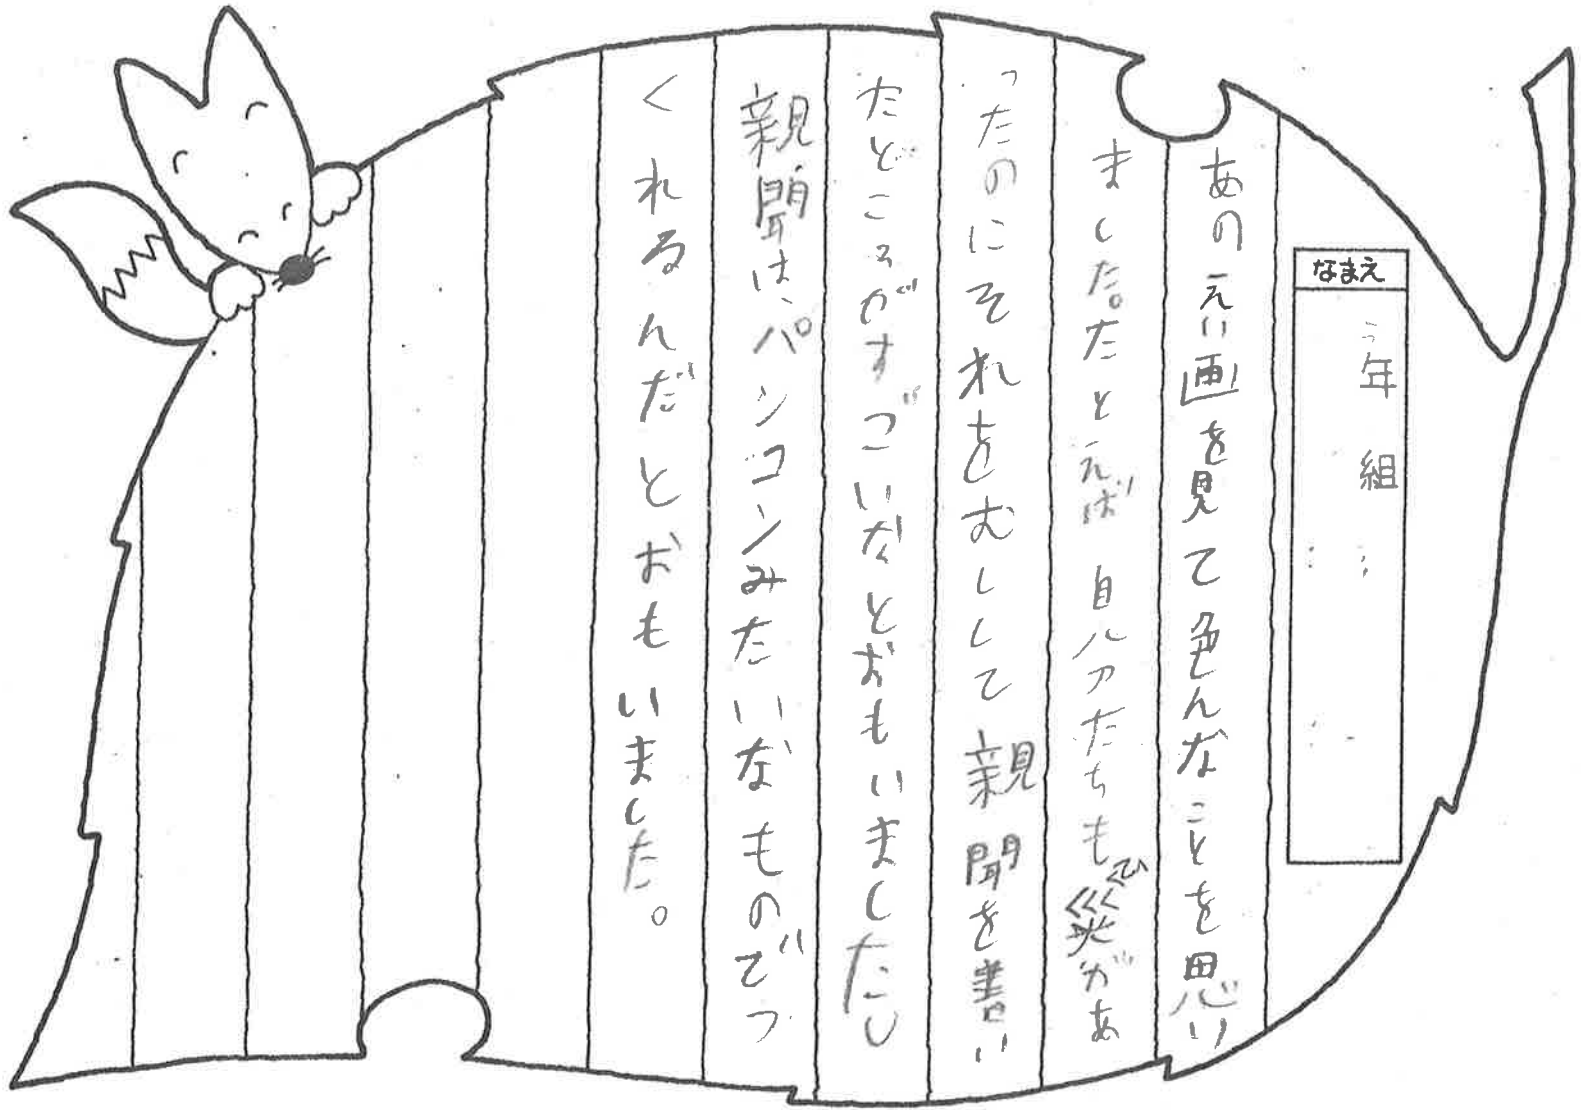 なまえ
年 組
あのえい画を見て色んなことを思い
ました。たとえば自分たちも災があ
ったのにそれをむしして親聞を書い
たところがすごいなとおもいましたし
親聞は、パソコンみたいなものでつ
くれるんだとおもいました。